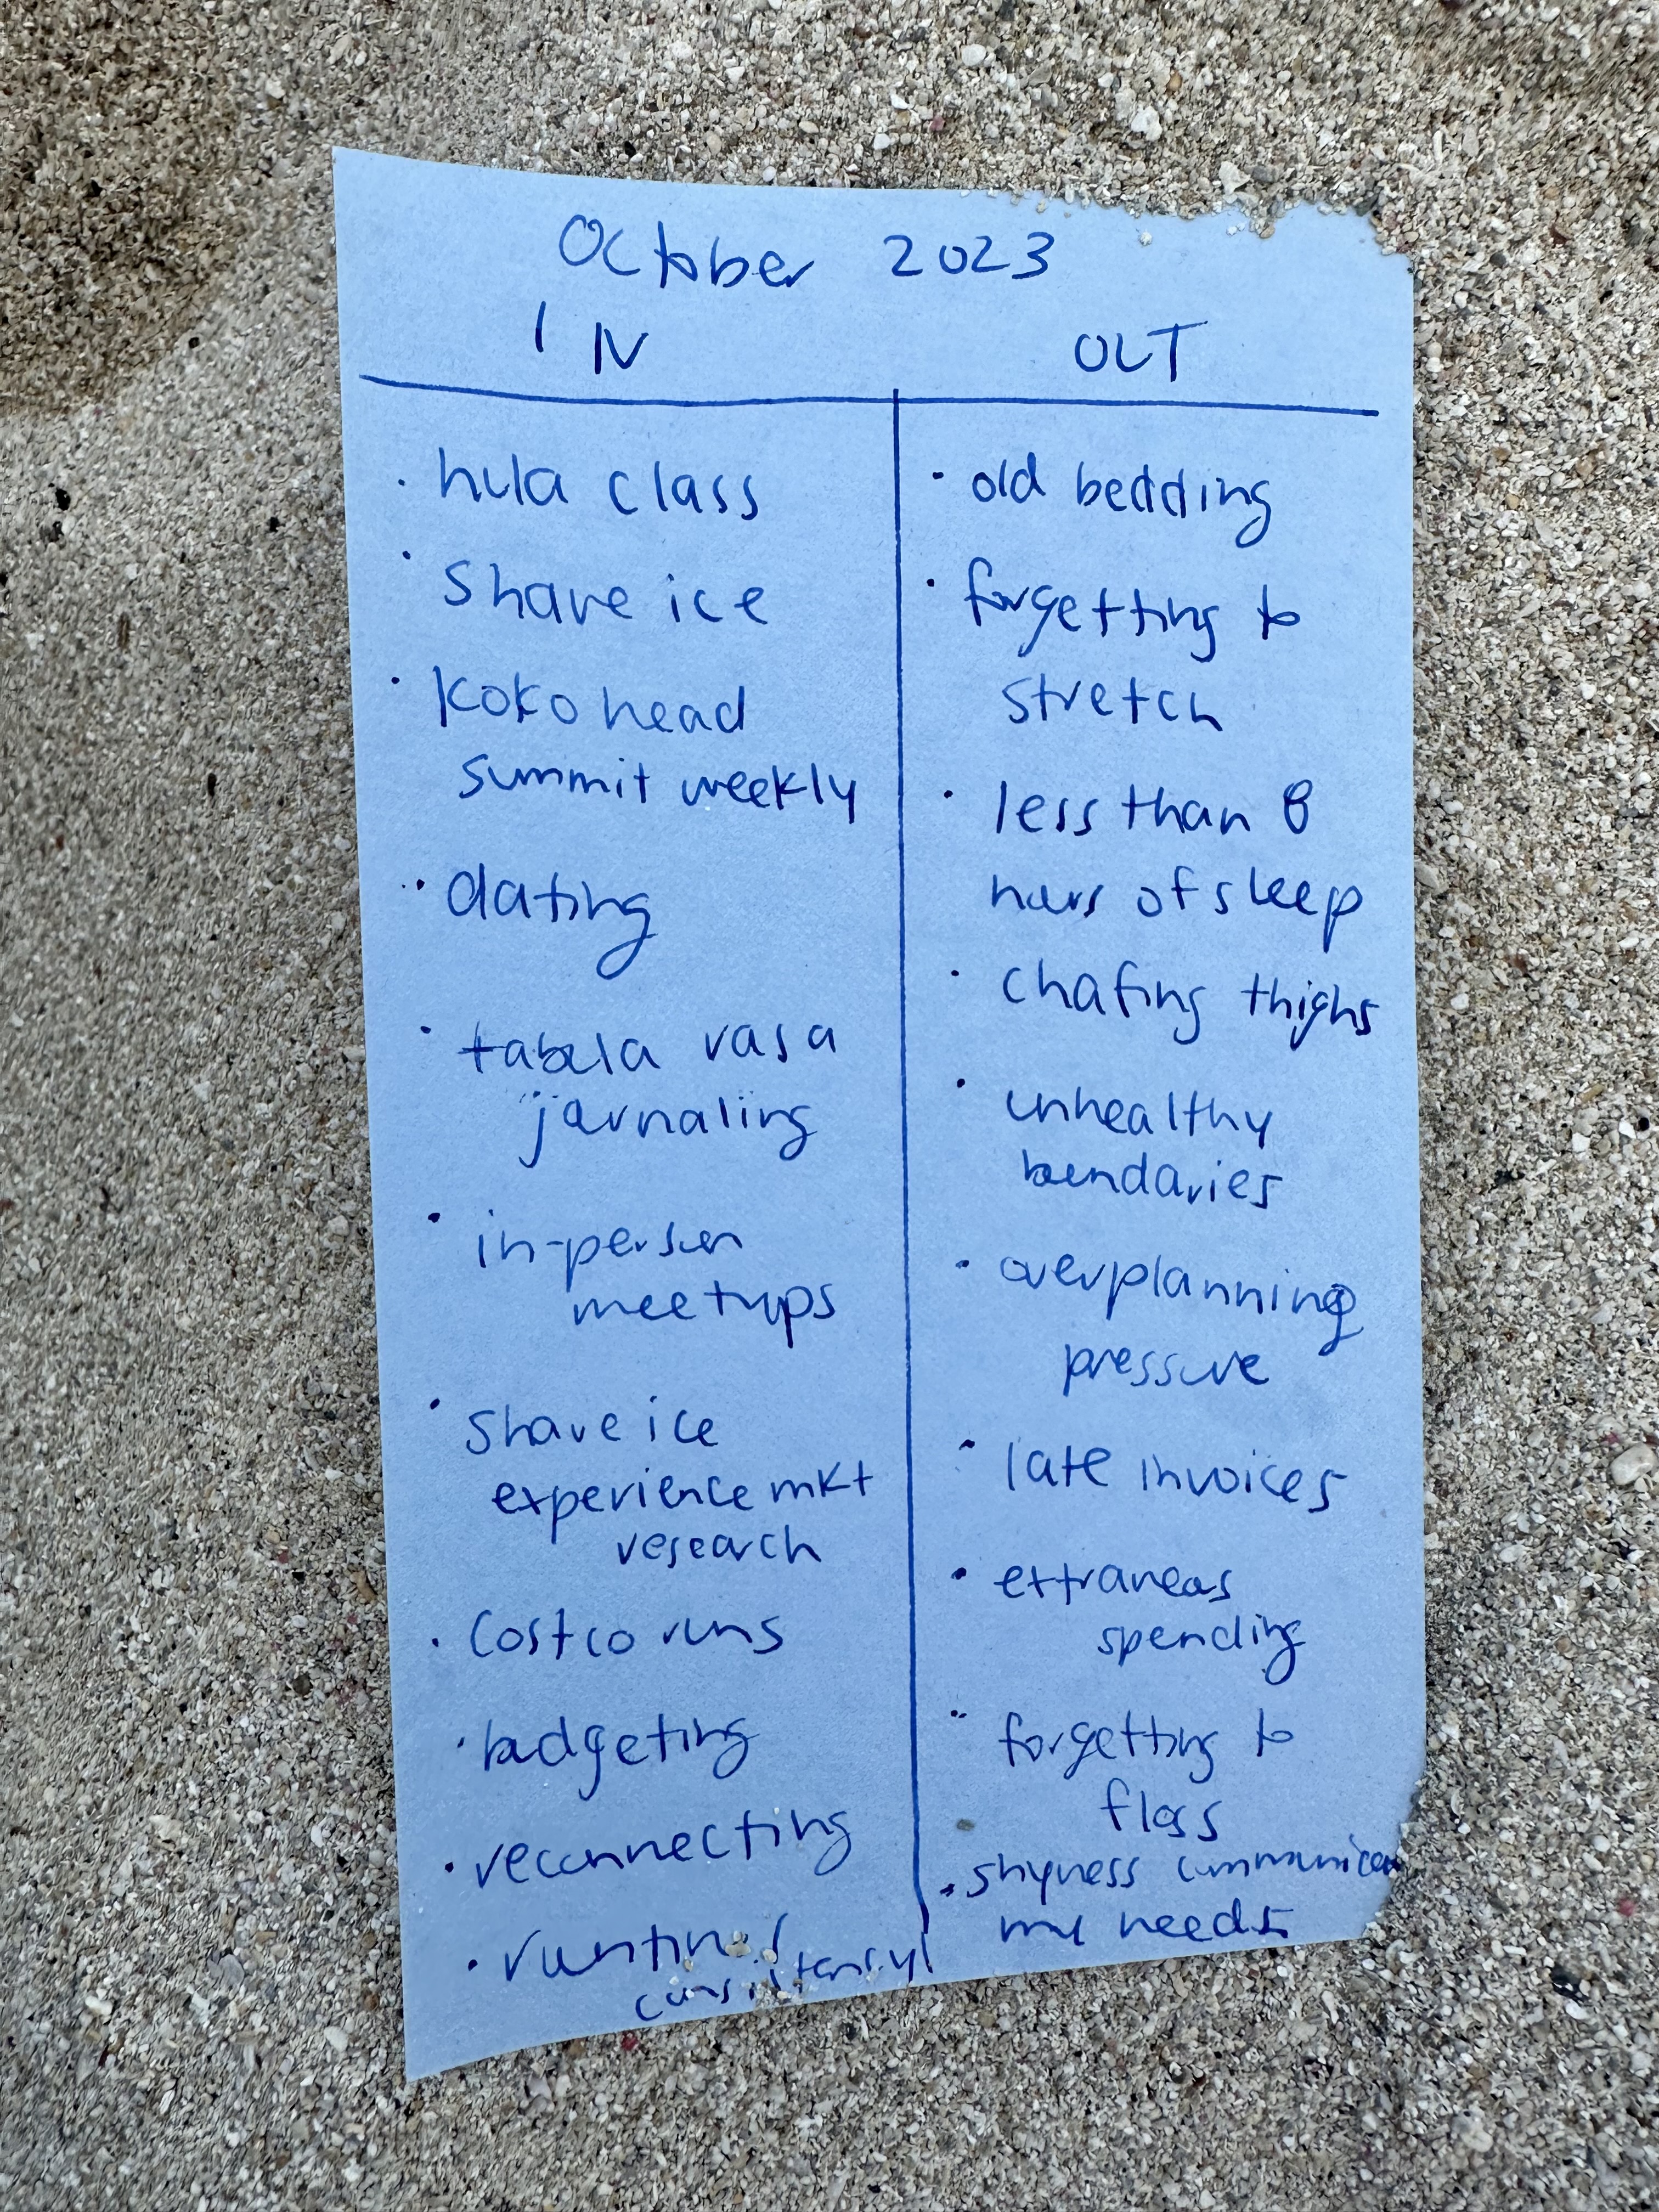 October 2023
IN
OUT
· hula class
· shave ice
· koko head
summit weekly
· dating
· tabula rasa
journaling
· in-person
meetups
· shave ice
experience mkt
research
· Costco runs
· budgeting
· reconnecting
· running
consistency
· old bedding
· forgetting to
stretch
· less than 8
hours of sleep
· chafing thighs
· unhealthy
boundaries
· overplanning
pressure
· late invoices
· extraneous
spending
· forgetting to
floss
· shyness
my needs